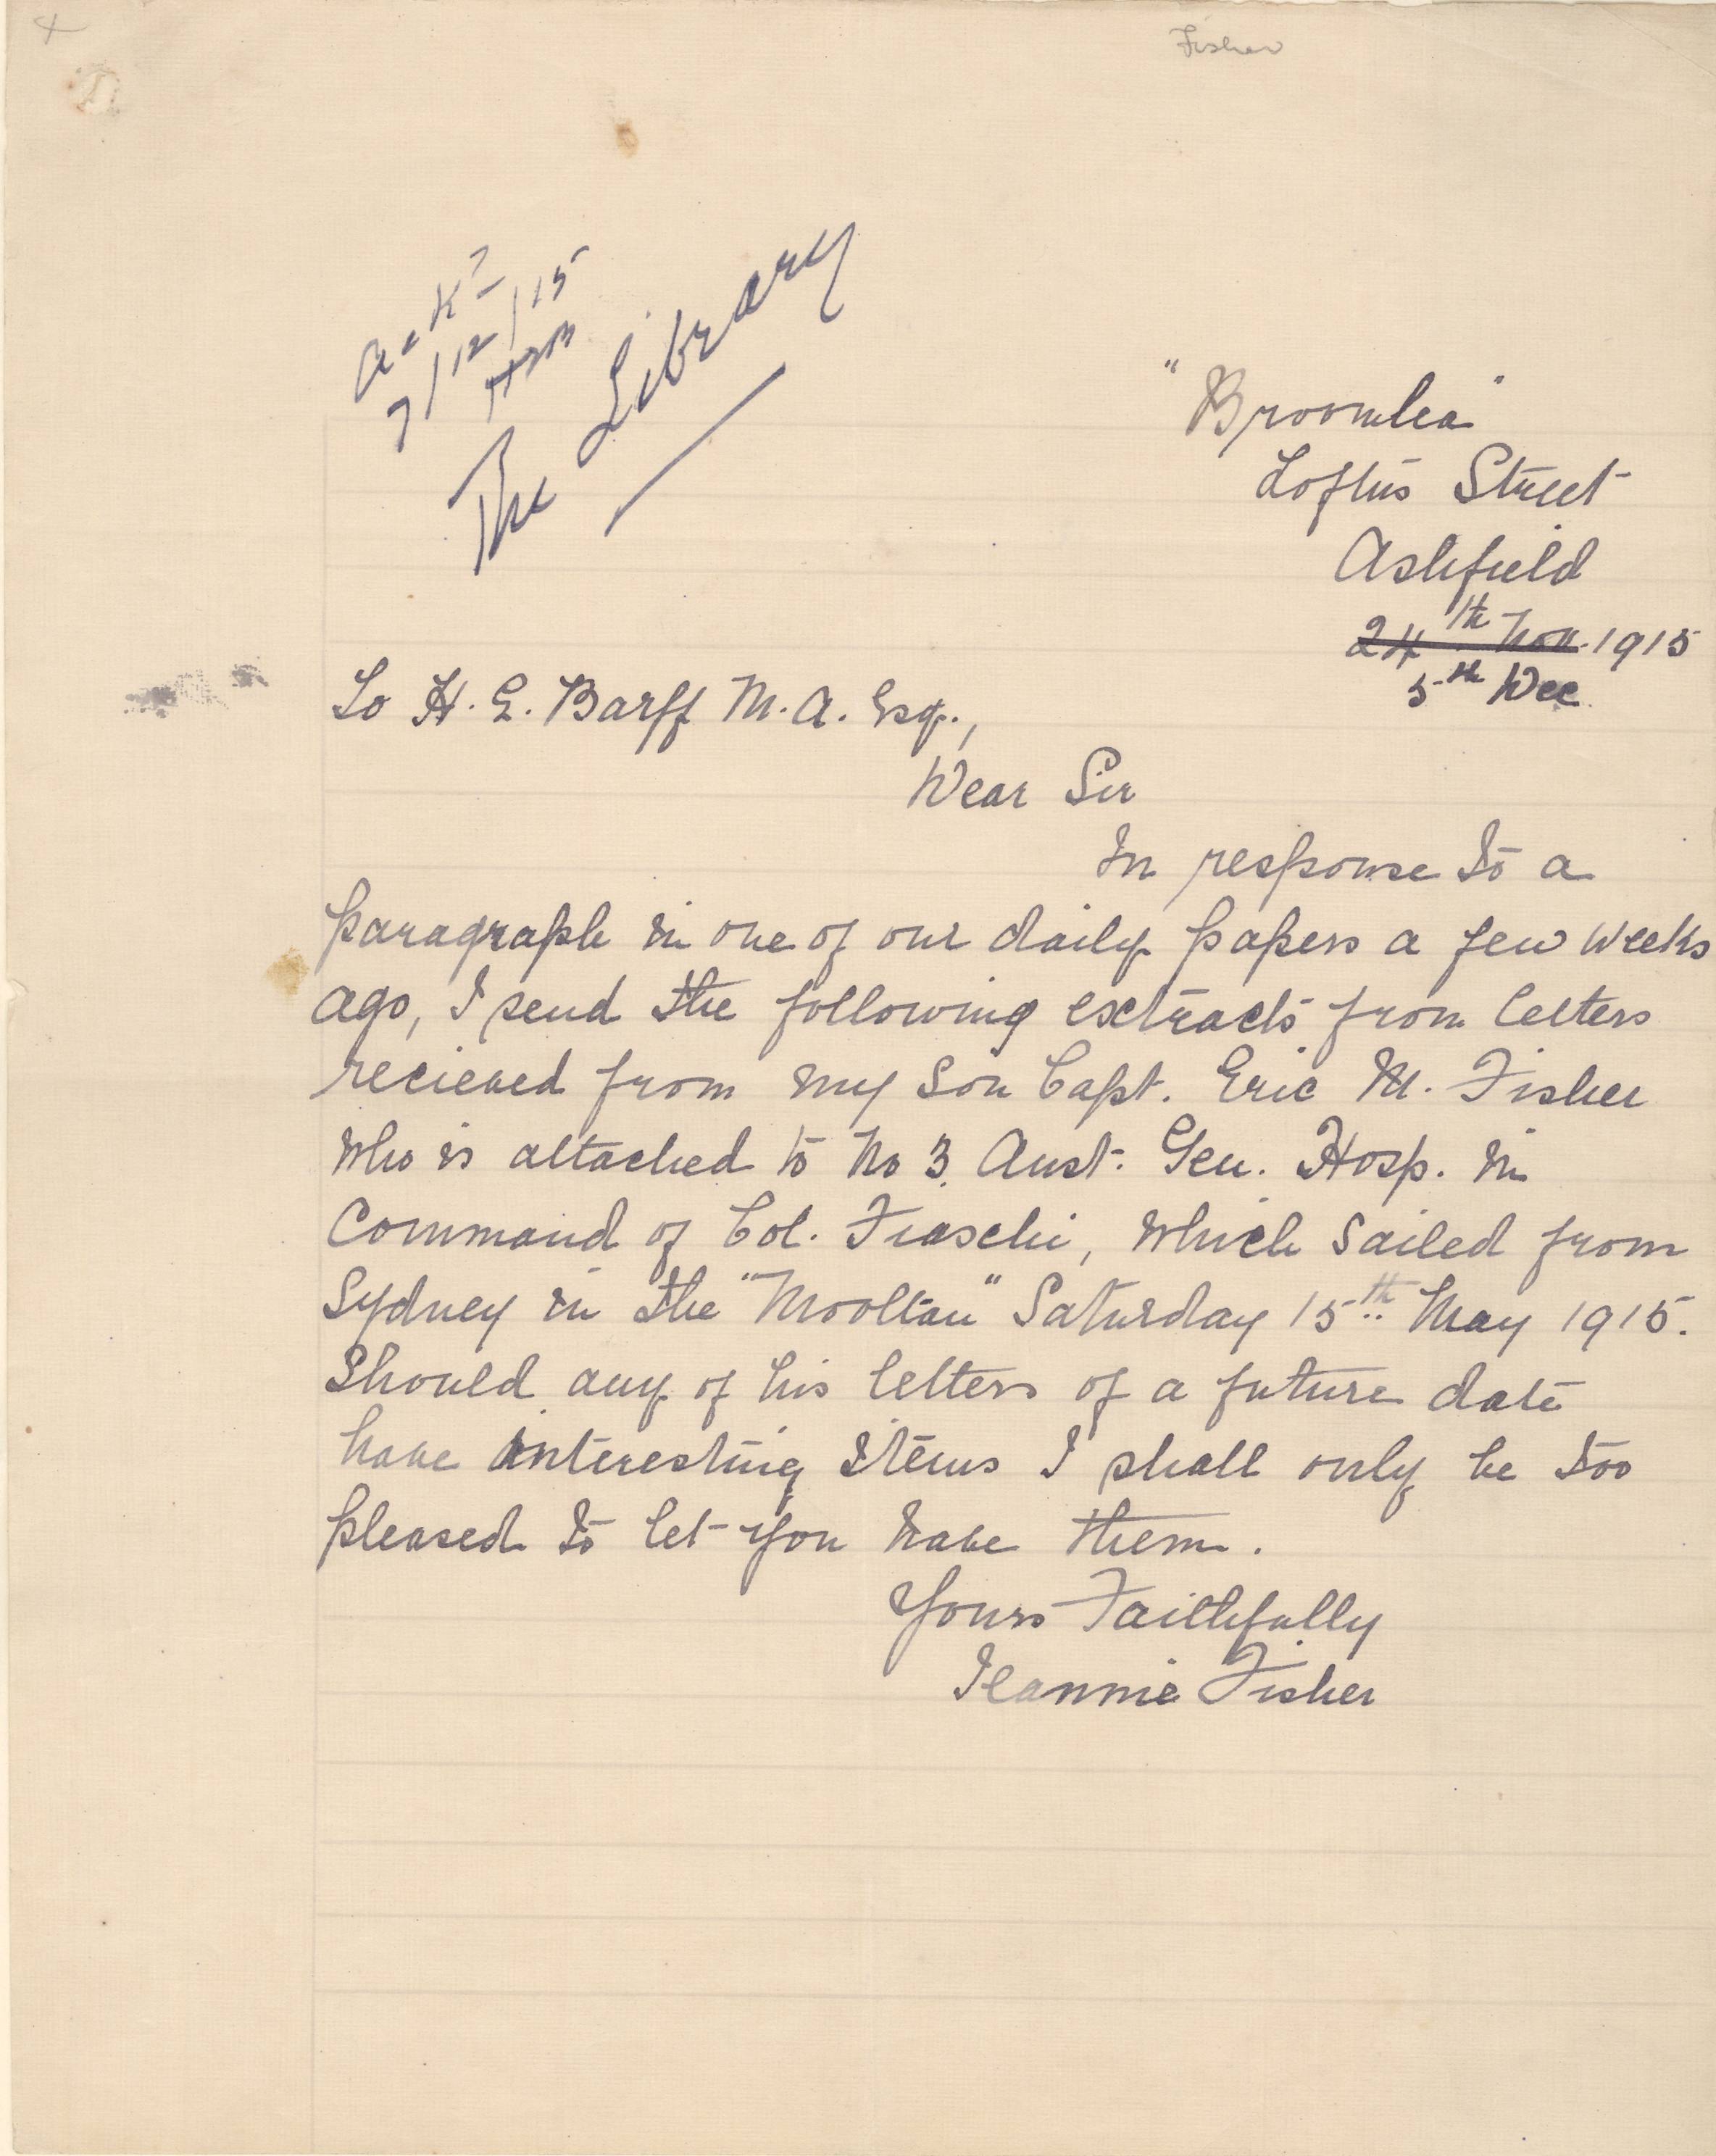 Fisher
Ackd
7/12/15
HEB
The Library
"Broomlea"
Loftus Street
Ashfield
24th Nov. 1915
5th Dec.
To H. E. Barff M.A. Esq.,
Dear Sir
In response to a
paragraph in one of our daily papers a few weeks
ago, I send the following extracts from letters
recieved from my son Capt. Eric M. Fisher
who is attached to No 3 Aust. Gen. Hosp. in
Command of Col. Fiaschi, which sailed from
Sydney in the "Mooltan" Saturday 15th May 1915.
Should any of his letters of a future date
have interesting items I shall only be too
pleased to let you have them.
Yours Faithfully
Jeannie Fisher